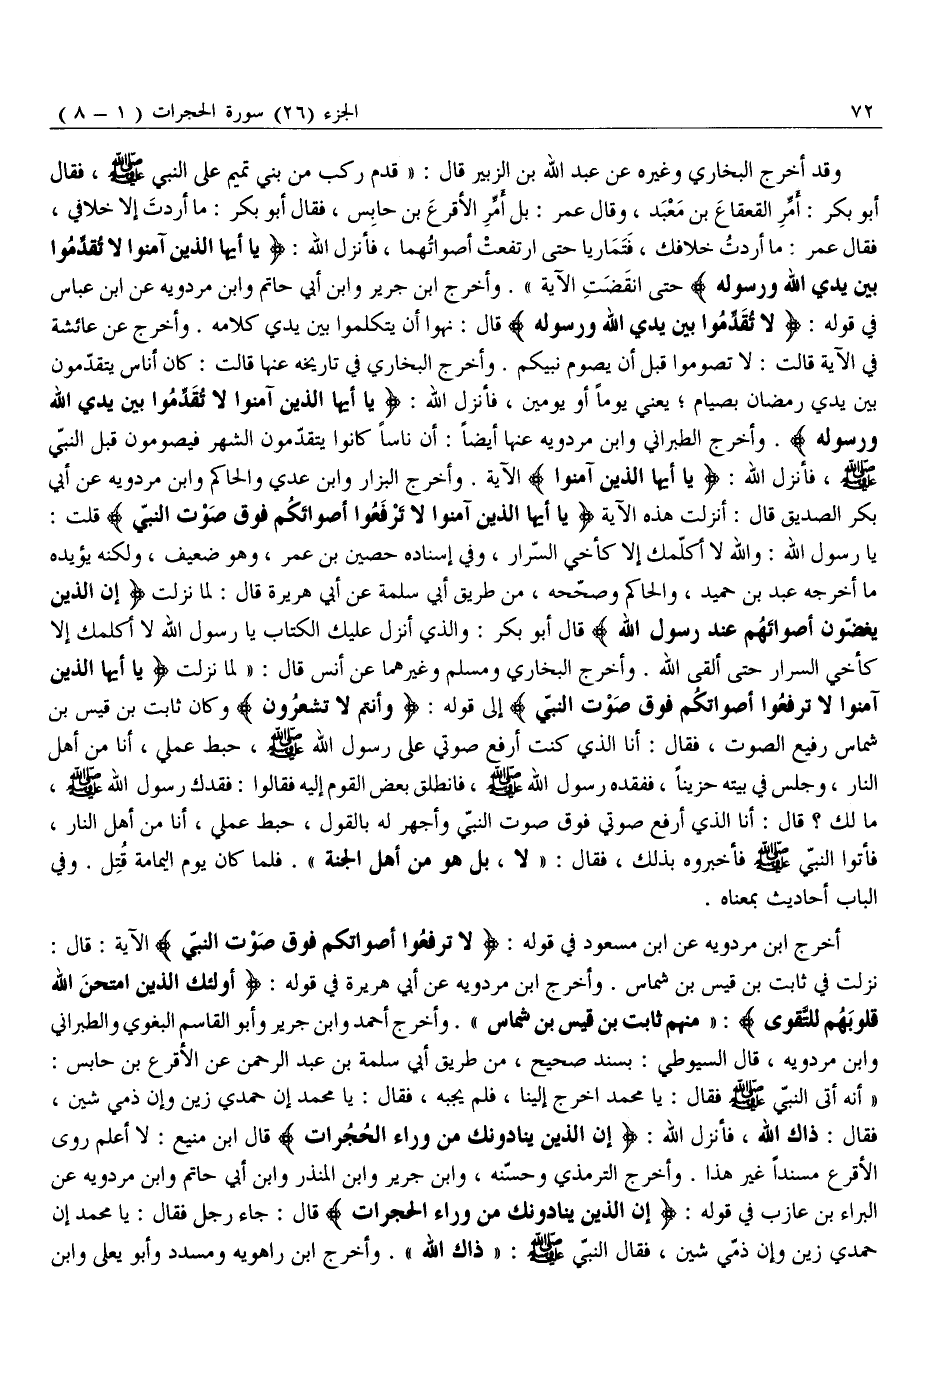 ٧٢
الجزء (٢٦) سورة الحجرات ( ١ – ٨ )
وقد أخرج البخاري وغيره عن عبد الله بن الزبير قال : « قدم ركب من بني تميم على النبي ﷺ ، فقال
أبو بكر : أَمِّرِ القعقاعَ بن مَعْبَد ، وقال عمر : بل أَمِّرِ الأقرعَ بن حابِس ، فقال أبو بكر : ما أردتَ إلا خلافي ،
فقال عمر : ما أردتُ خلافك ، فَتَمَاريا حتى ارتفعتْ أصواتُهما ، فأنزل الله : ﴿ يا أيها الذين آمنوا لا تُقدِّمُوا
بين يدي الله ورسوله ﴾ حتى انقَضَتِ الآية » . وأخرج ابن جرير وابن أبي حاتم وابن مردويه عن ابن عباس
في قوله : ﴿ لا تُقَدِّمُوا بين يدي الله ورسوله ﴾ قال : نهوا أن يتكلموا بين يدي كلامه . وأخرج عن عائشة
في الآية قالت : لا تصوموا قبل أن يصوم نبيكم . وأخرج البخاري في تاريخه عنها قالت : كان أناس يتقدّمون
بين يدي رمضان بصيام ؛ يعني يوماً أو يومين ، فأنزل الله : ﴿ يا أيها الذين آمنوا لا تُقَدِّمُوا بين يدي الله
ورسوله ﴾ . وأخرج الطبراني وابن مردويه عنها أيضاً : أن ناساً كانوا يتقدّمون الشهر فيصومون قبل النبيّ
ﷺ ، فأنزل الله : ﴿ يا أيها الذين آمنوا ﴾ الآية . وأخرج البزار وابن عدي والحاكم وابن مردويه عن أبي
بكر الصديق قال : أنزلت هذه الآية ﴿ يا أيها الذين آمنوا لا تَرْفَعُوا أصواتَكُم فوق صَوْت النبيّ ﴾ قلت :
يا رسول الله : والله لا أكلّمك إلا كأخي السّرار ، وفي إسناده حصين بن عمر ، وهو ضعيف ، ولكنه يؤيده
ما أخرجه عبد بن حميد ، والحاكم وصحّحه ، من طريق أبي سلمة عن أبي هريرة قال : لما نزلت ﴿ إن الذين
يغضّون أصواتَهُم عند رسول الله ﴾ قال أبو بكر : والذي أنزل عليك الكتاب يا رسول الله لا أكلمك إلا
كأخي السرار حتى ألقى الله . وأخرج البخاري ومسلم وغيرهما عن أنس قال : « لما نزلت ﴿ يا أيها الذين
آمنوا لا ترفعُوا أصواتكُم فوق صَوْت النبيّ ﴾ إلى قوله : ﴿ وأنتم لا تشعرُون ﴾ وكان ثابت بن قيس بن
شماس رفيع الصوت ، فقال : أنا الذي كنت أرفع صوتي على رسول الله ﷺ ، حبط عملي ، أنا من أهل
النار ، وجلس في بيته حزيناً ، ففقده رسول الله ﷺ ، فانطلق بعض القوم إليه فقالوا : فقدك رسول الله ﷺ ،
ما لك ؟ قال : أنا الذي أرفع صوتي فوق صوت النبيّ وأجهر له بالقول ، حبط عملي ، أنا من أهل النار ،
فأتوا النبيّ ﷺ فأخبروه بذلك ، فقال : « لا ، بل هو من أهل الجنة » . فلما كان يوم اليمامة قُتِل . وفي
الباب أحاديث بمعناه .
أخرج ابن مردويه عن ابن مسعود في قوله : ﴿ لا ترفعُوا أصواتكم فوق صَوْت النبيّ ﴾ الآية : قال :
نزلت في ثابت بن قيس بن شماس . وأخرج ابن مردويه عن أبي هريرة في قوله : ﴿ أولئك الذين امتحنَ الله
قلوبَهُم للتَّقوى ﴾ : « منهم ثابت بن قيس بن شماس » . وأخرج أحمد وابن جرير وأبو القاسم البغوي والطبراني
وابن مردويه ، قال السيوطي : بسند صحيح ، من طريق أبي سلمة بن عبد الرحمن عن الأقرع بن حابس :
« أنه أتى النبيّ ﷺ فقال : يا محمد اخرج إلينا ، فلم يجبه ، فقال : يا محمد إن حمدي زين وإن ذمي شين ،
فقال : ذاك الله ، فأنزل الله : ﴿ إن الذين ينادونك من وراء الحُجُرات ﴾ قال ابن منيع : لا أعلم روى
الأقرع مسنداً غير هذا . وأخرج الترمذي وحسّنه ، وابن جرير وابن المنذر وابن أبي حاتم وابن مردويه عن
البراء بن عازب في قوله : ﴿ إن الذين ينادونك من وراء الحجرات ﴾ قال : جاء رجل فقال : يا محمد إن
حمدي زين وإن ذمّي شين ، فقال النبيّ ﷺ : « ذاك الله » . وأخرج ابن راهويه ومسدد وأبو يعلى وابن